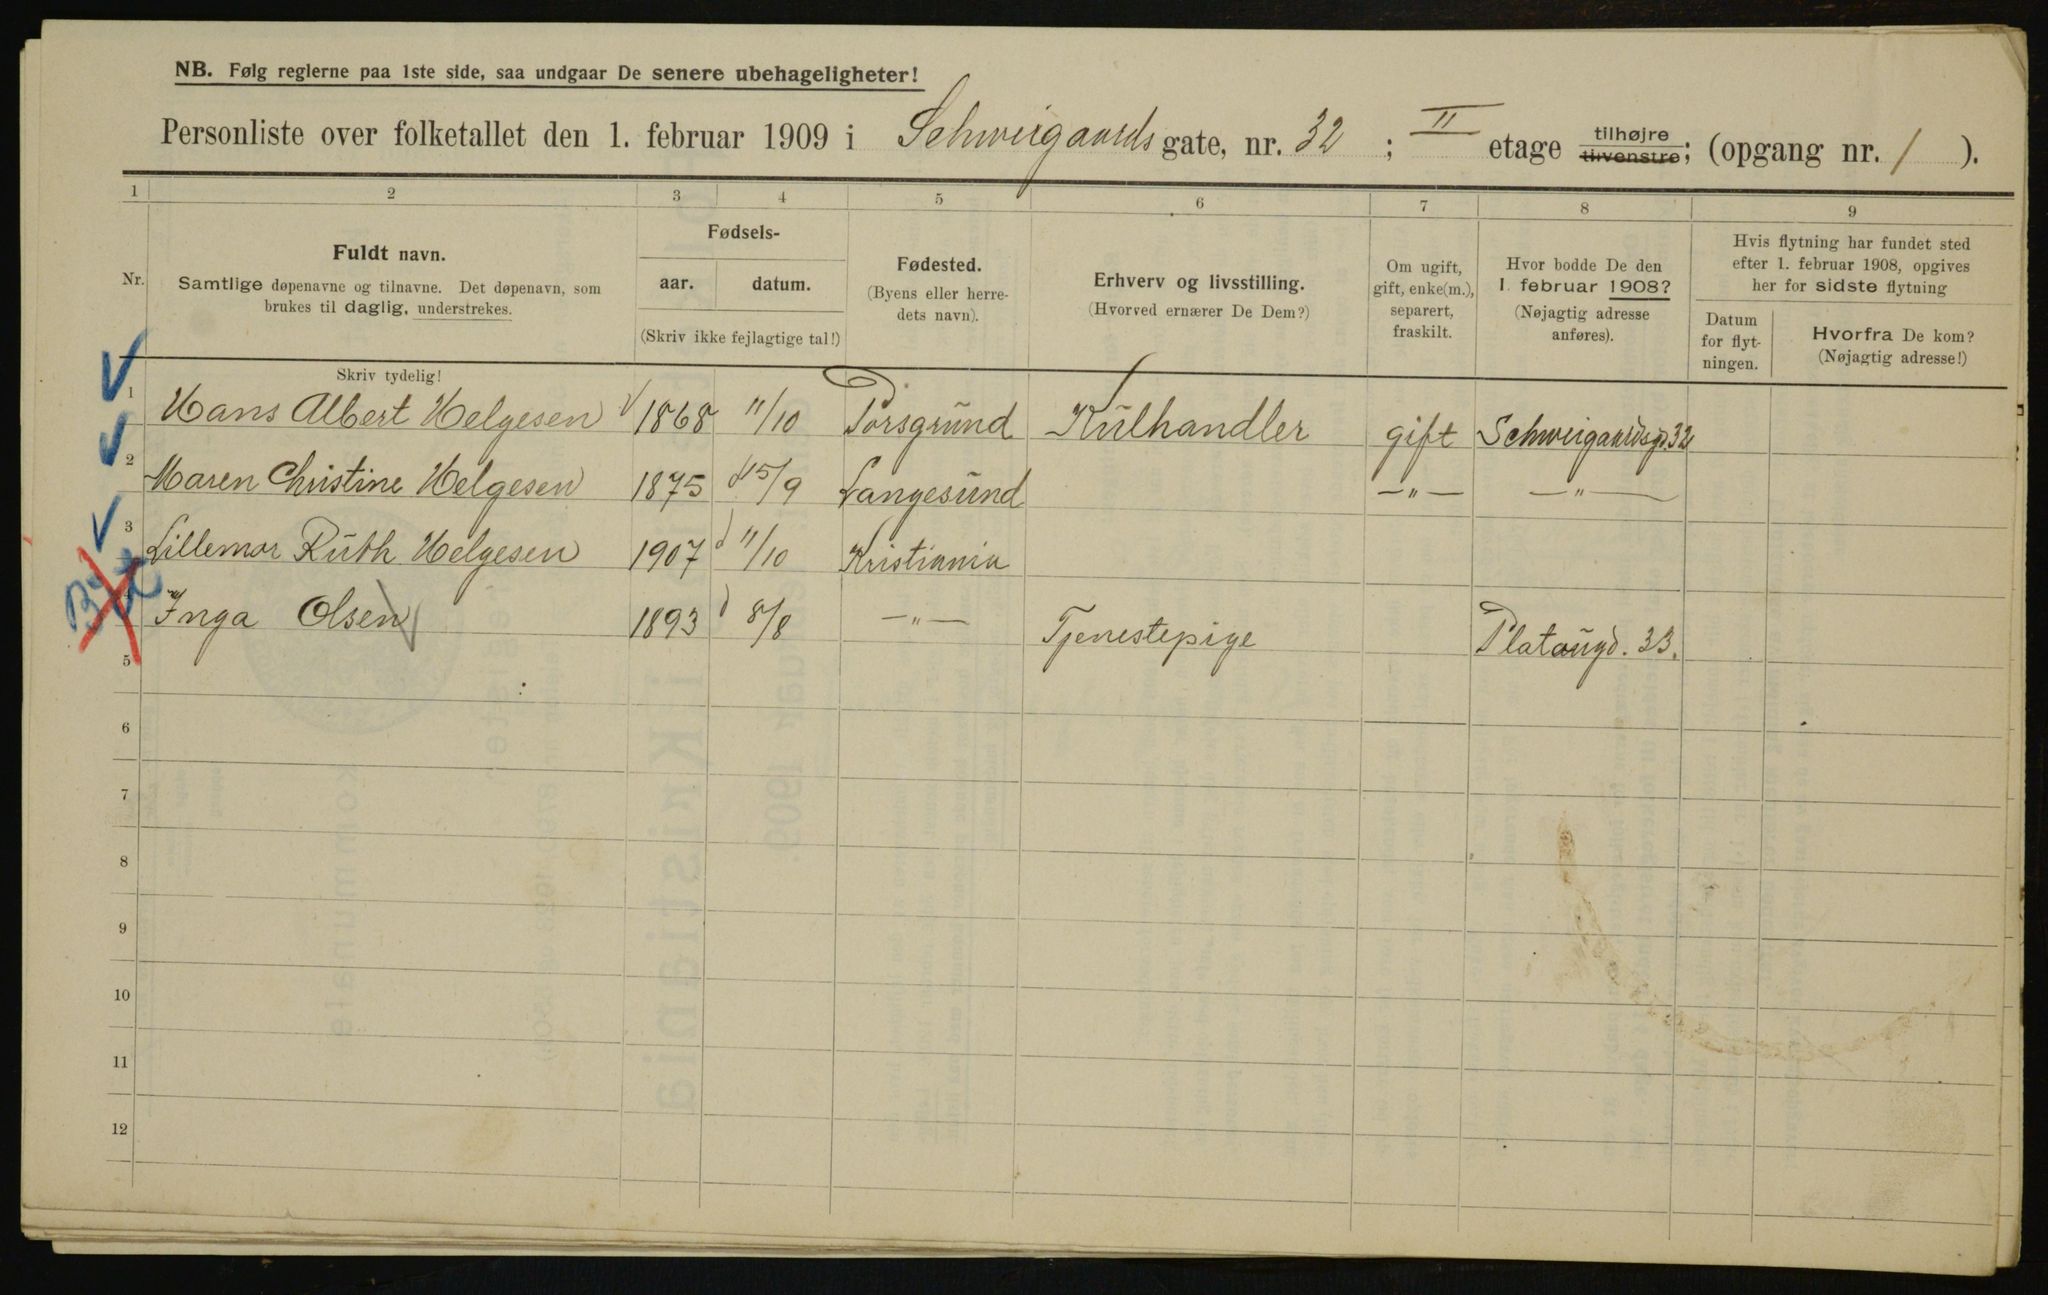 NB. Følg reglerne paa 1ste side, saa undgaar De senere ubehageligheter!
Personliste over folketallet den 1. februar 1909 i Schweigaards gate, nr. 32 ; II etage tilhøjre tilvenstre; (opgang nr. 1 ).
1 2 3 4 5 6 7 8 9
Nr.
Fuldt navn.
Samtlige døpenavne og tilnavne. Det døpenavn, som
brukes til daglig, understrekes.
Skriv tydelig!
Fødsels-
aar. datum.
(Skriv ikke fejlagtige tal!)
Fødested.
(Byens eller herre-
dets navn).
Erhverv og livsstilling.
(Hvorved ernærer De Dem?)
Om ugift,
gift, enke(m.),
separert,
fraskilt.
Hvor bodde De den
1. februar 1908?
(Nøjagtig adresse
anføres).
Hvis flytning har fundet sted
efter 1. februar 1908, opgives
her for sidste flytning
Datum
for flyt-
ningen.
Hvorfra De kom?
(Nøjagtig adresse!)
1 Hans Albert Helgesen 1868 11/10 Porsgrund Kulhandler gift Schweigaardsgd. 32
2 Maren Christine Helgesen 1875 15/9 Langesund —„— —„—
3 Lillemor Ruth Helgesen 1907 11/10 Kristiania
4 Inga Olsen 1893 8/8 —„— Tjenestepige Platougd. 33.
5
6
7
8
9
10
11
12